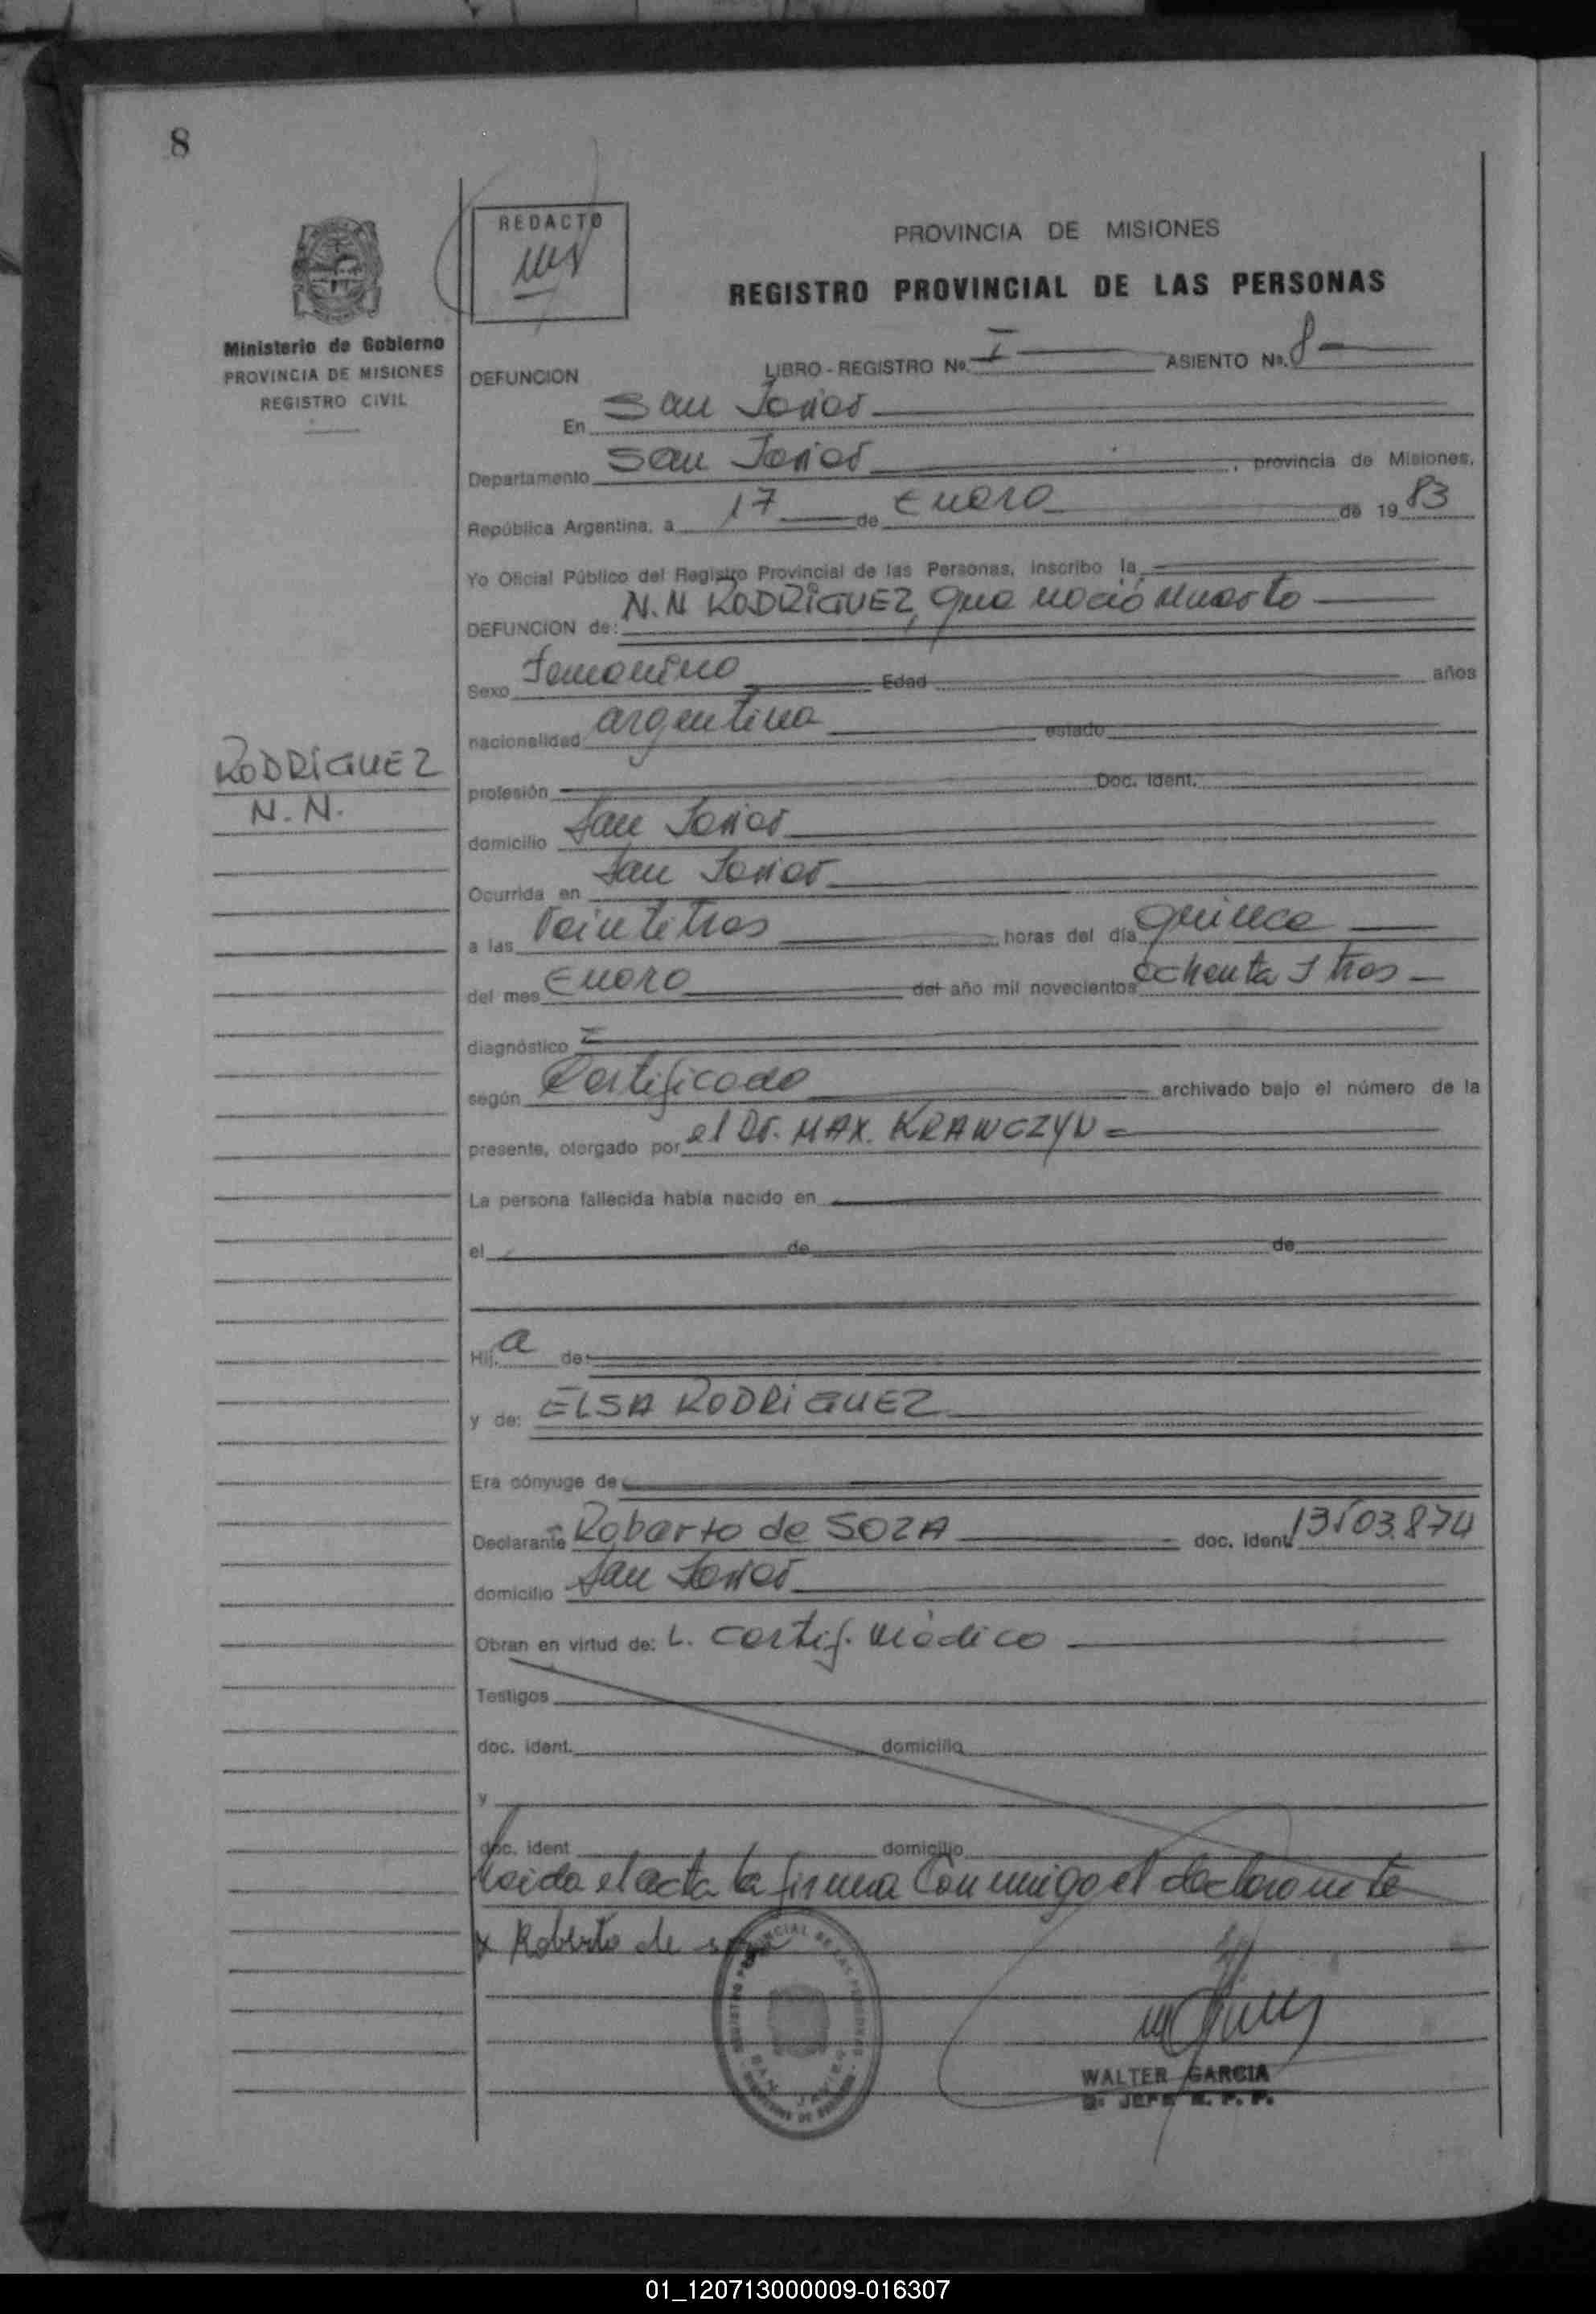 8
REDACTO
PROVINCIA DE MISIONES
REGISTRO PROVINCIAL DE LAS PERSONAS
Ministerio de Gobierno
PROVINCIA DE MISIONES
REGISTRO CIVIL
DEFUNCION LIBRO - REGISTRO No. I ASIENTO No. 8
En San Javier
Departamento San Javier, provincia de Misiones,
República Argentina, a 17 de Enero de 1983
Yo Oficial Público del Registro Provincial de las Personas, inscribo la
DEFUNCION de: N.N RODRIGUEZ, que nació Muerto
Sexo Femenino Edad años
nacionalidad argentina estado
RODRIGUEZ
N.N.
profesión Doc. Ident.
domicilio San Javier
Ocurrida en San Javier
a las Veintitres horas del día quince
del mes Enero del año mil novecientos ochenta y tres
diagnóstico
según Certificado archivado bajo el número de la
presente, otorgado por el Dr. MAX. KRAWCZYN
La persona fallecida había nacido en
el de de
Hij a de:
y de: ELSA RODRIGUEZ
Era cónyuge de
Declarante Roberto de SOZA doc. Ident. 13503.874
domicilio San Javier
Obran en virtud de: L. certif. médico
Testigos
doc. ident. domicilio
y
doc. ident domicilio
Leida el acta la firma Conmigo el declarante
x Roberto de
WALTER GARCIA
JEFE R. P. P.
01_120713000009-016307